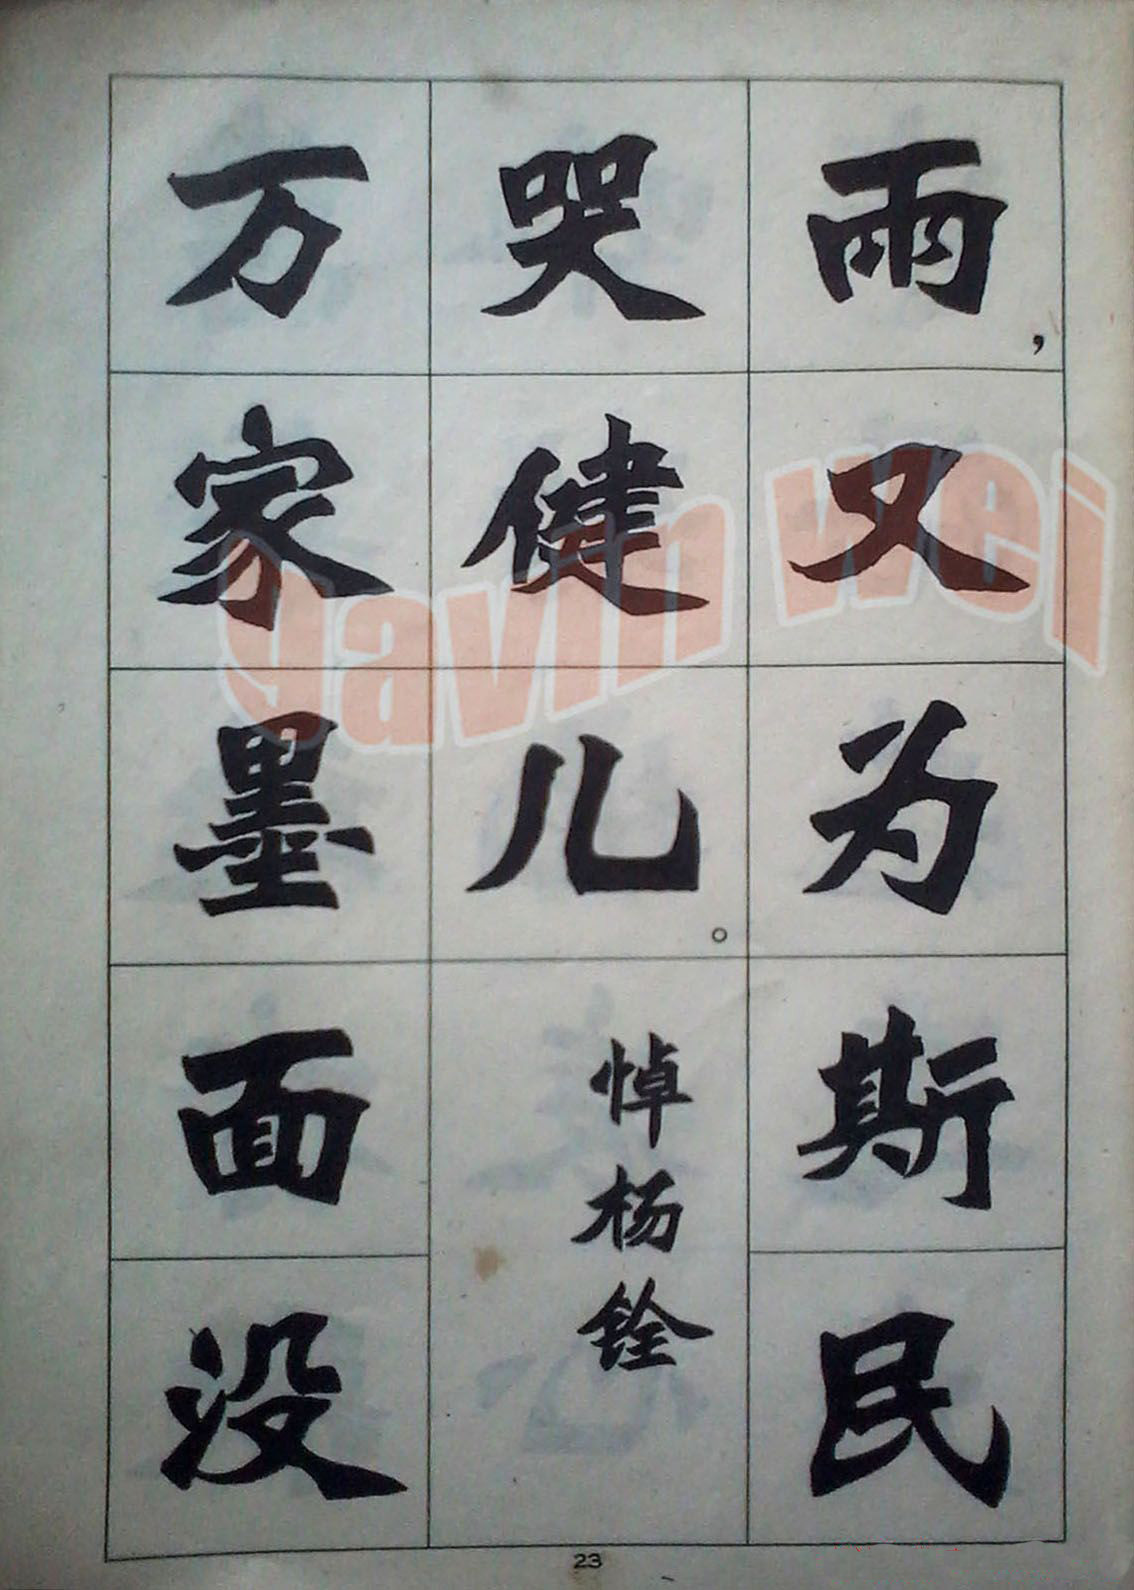 雨，又为斯民
哭健儿。
悼杨铨
万家墨面没
23
gavin wei